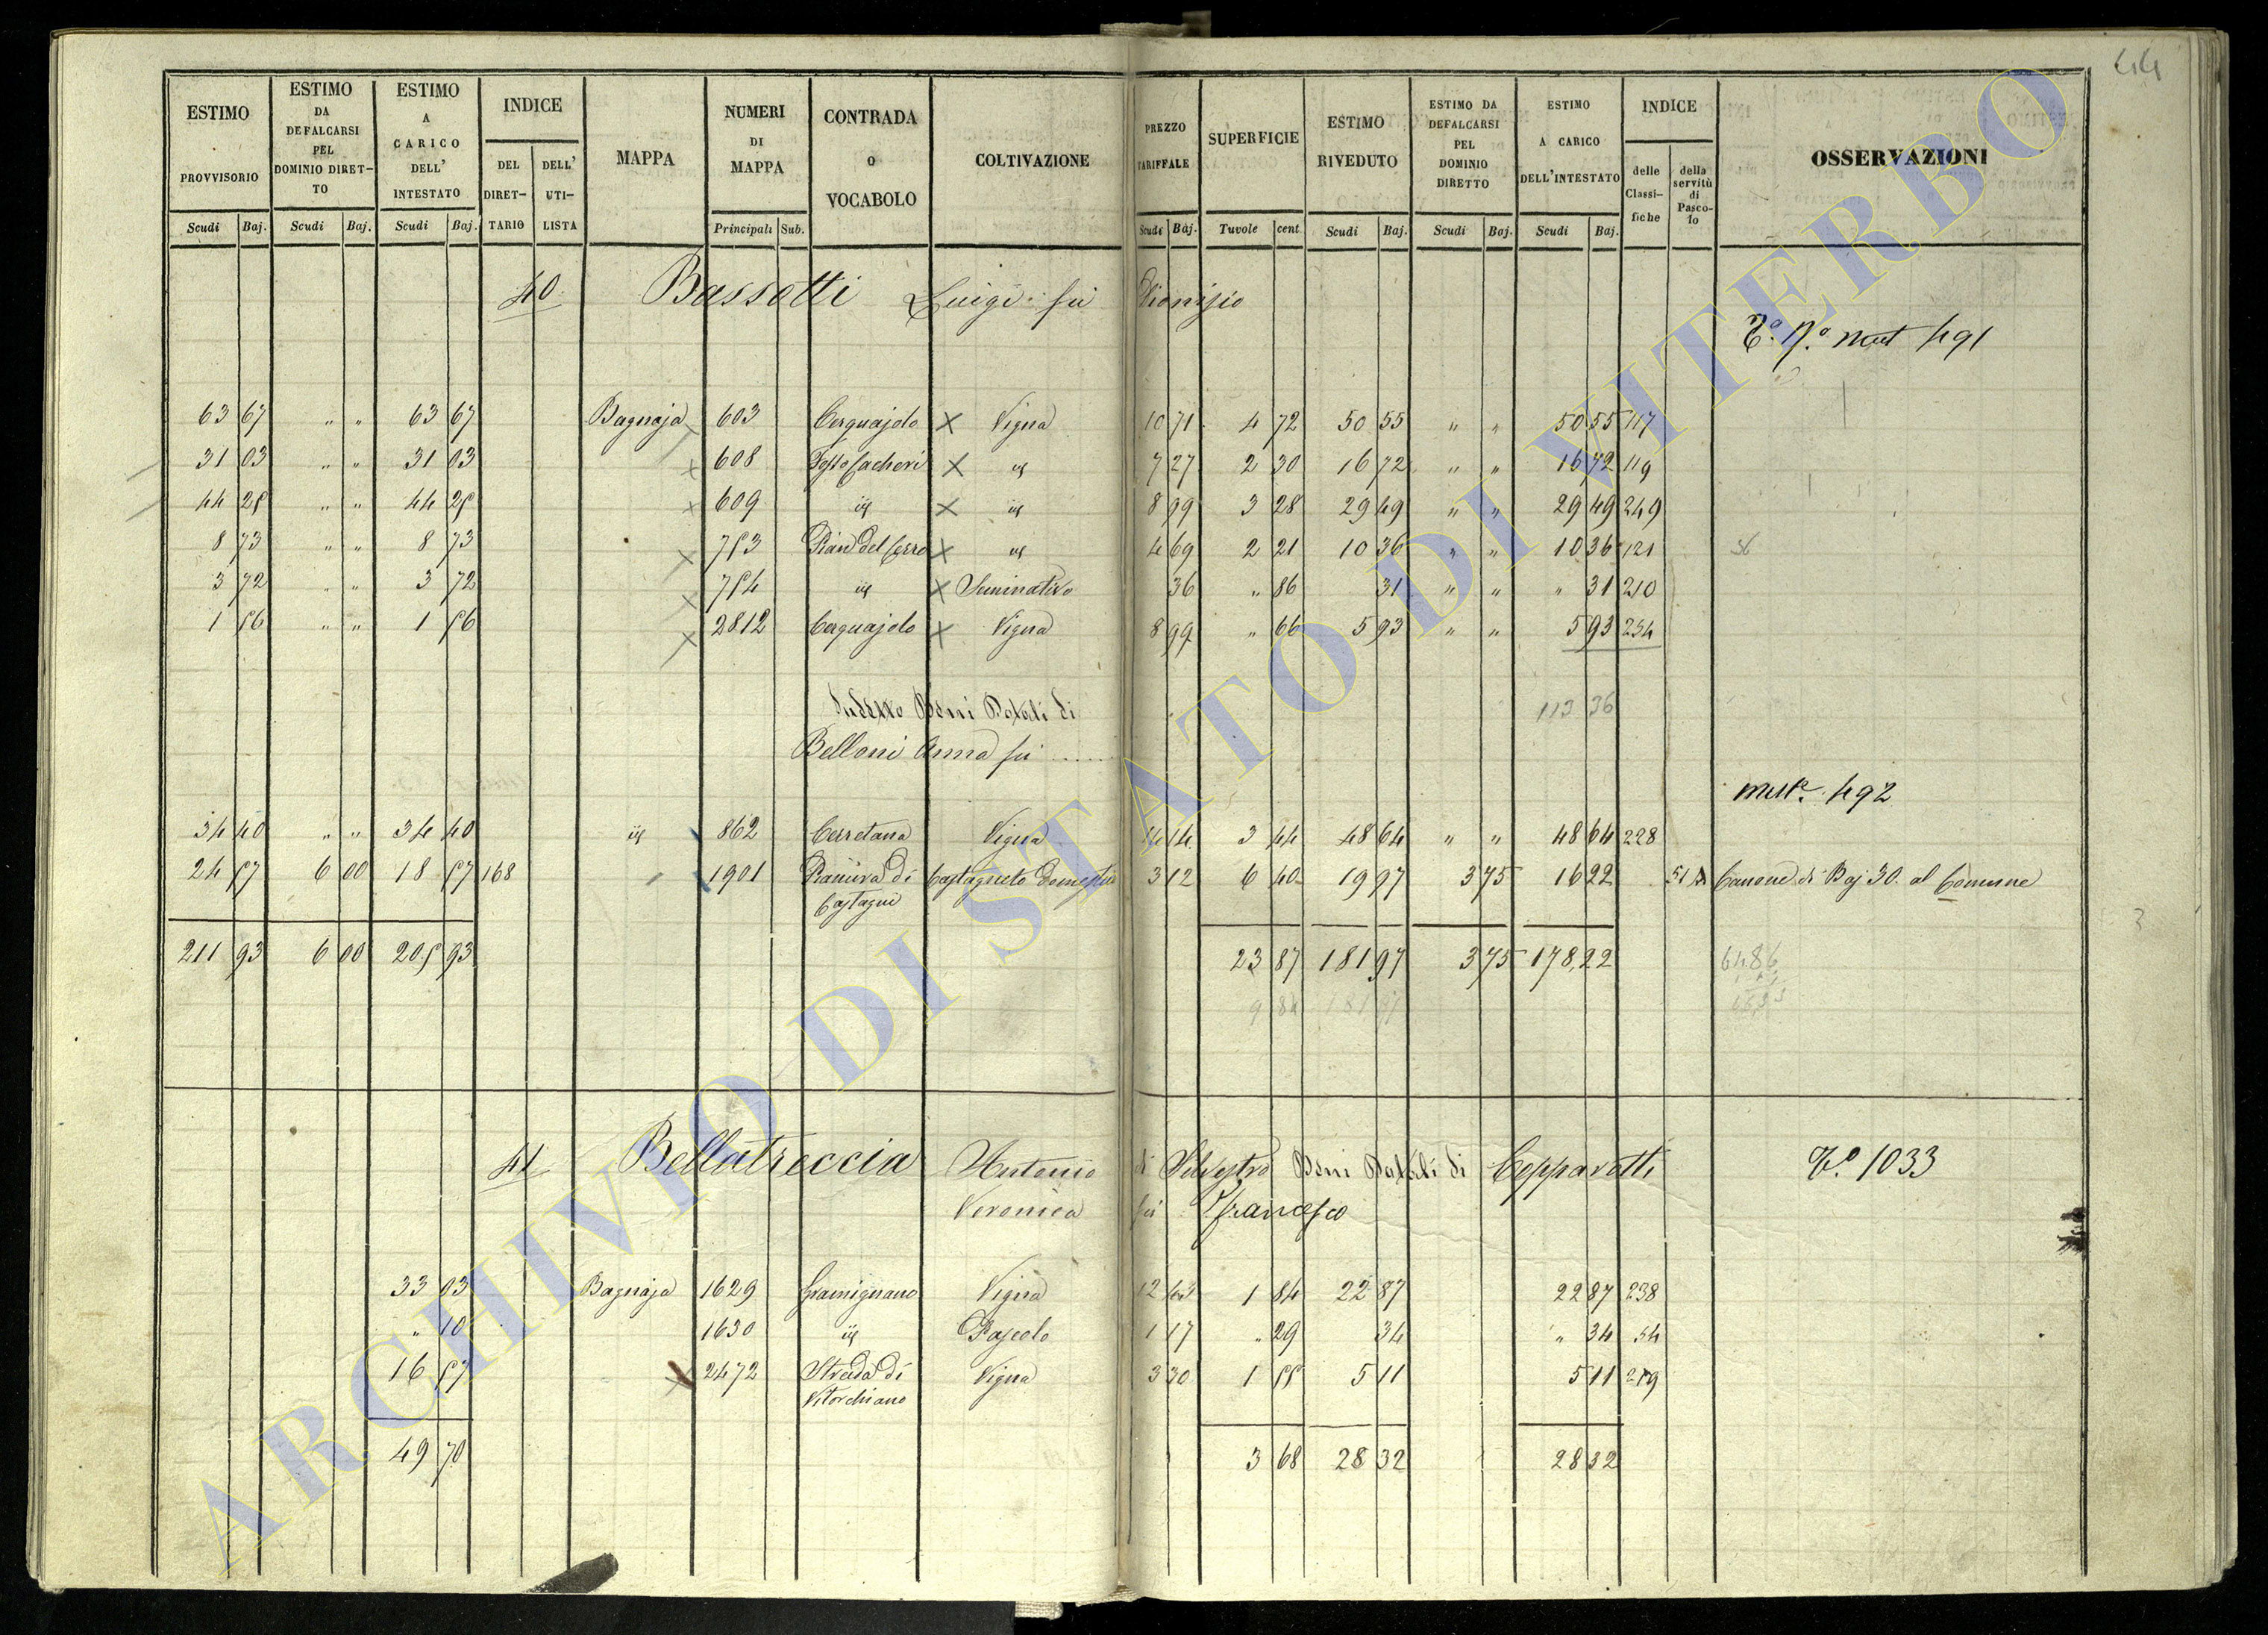 44
ESTIMO PROVVISORIO | ESTIMO DA DEFALCARSI PEL DOMINIO DIRETTO | ESTIMO A CARICO DELL' INTESTATO | INDICE | MAPPA | NUMERI DI MAPPA | CONTRADA O VOCABOLO | COLTIVAZIONE | PREZZO TARIFFALE | SUPERFICIE | ESTIMO RIVEDUTO | ESTIMO DA DEFALCARSI PEL DOMINIO DIRETTO | ESTIMO A CARICO DELL'INTESTATO | INDICE | OSSERVAZIONI
DEL DIRETTARIO | DELL' UTILISTA | delle Classifiche | della servitù di Pascolo
Scudi | Baj. | Scudi | Baj. | Scudi | Baj. | Principali | Sub. | Scudi | Baj. | Tavole | cent. | Scudi | Baj. | Scudi | Baj. | Scudi | Baj.
40. Bassotti Luigi fù Dionisio
T.º N.º mut 491
63 67 " " 63 67 Bagnaja 603 Cerquajolo X Vigna 10 71 4 72 50 55 " " 50 55 117
31 03 " " 31 03 X 608 X id 7 27 2 30 16 72 " " 16 72 119
44 25 " " 44 25 X 609 id X id 8 99 3 28 29 49 " " 29 49 249
8 73 " " 8 73 X 753 Pian del Cerro X id 4 69 2 21 10 36 " " 10 36 121 56
3 72 " " 3 72 X 754 id X Seminativo 36 " 86 31 " " " 31 210
1 56 " " 1 56 X 2812 Cerquajolo X Vigna 8 99 " 66 5 93 " " 5 93 234
Sudetto Beni Dotali di 113 36
Belloni Anna fù .....
mut.e 492
34 40 " " 34 40 id 862 Cerretana Vigna 14 14 3 44 48 64 " " 48 64 228
24 57 6 00 18 57 168 1901 Pianura di Castagni Castagneto domestico 3 12 6 40 19 97 3 75 16 22 51 Canone di Baj 30. al Comune
211 93 6 00 205 93 23 87 181 97 3 75 178,22
9 84 181 97
41 Bellatreccia Antonio di Silvestro Beni Dotali di Copparotti T.º 1033
Veronica fù Francesco
33 03 Bagnaja 1629 Gramignano Vigna 12 43 1 84 22 87 22 87 238
" 10 1630 id Pascolo 1 17 " 29 34 " 34 54
16 57 X 2472 Strada di Vitorchiano Vigna 3 30 1 55 5 11 5 11 219
49 70 3 68 28 32 28 32
ARCHIVIO DI STATO DI VITERBO